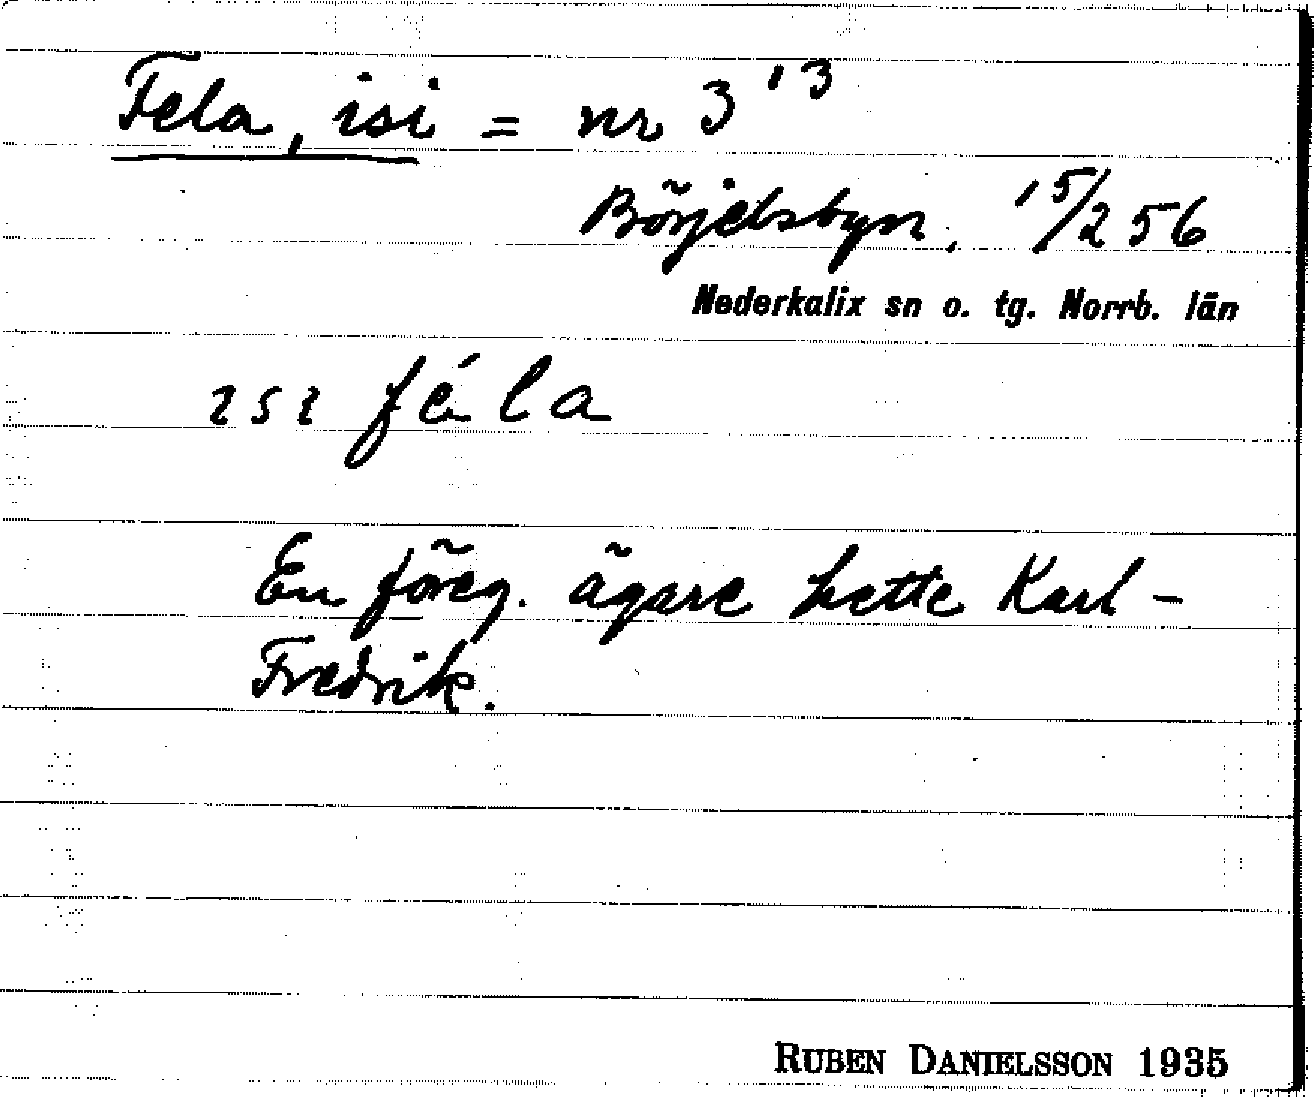 Fela, isi = nr 3¹³
Börjelsbyn. 15/2 56
Nederkalix sn o. tg. Norrb. län
ɩsɩ féla
En föreg. ägare hette Karl-
Fredrik.
RUBEN DANIELSSON 1935